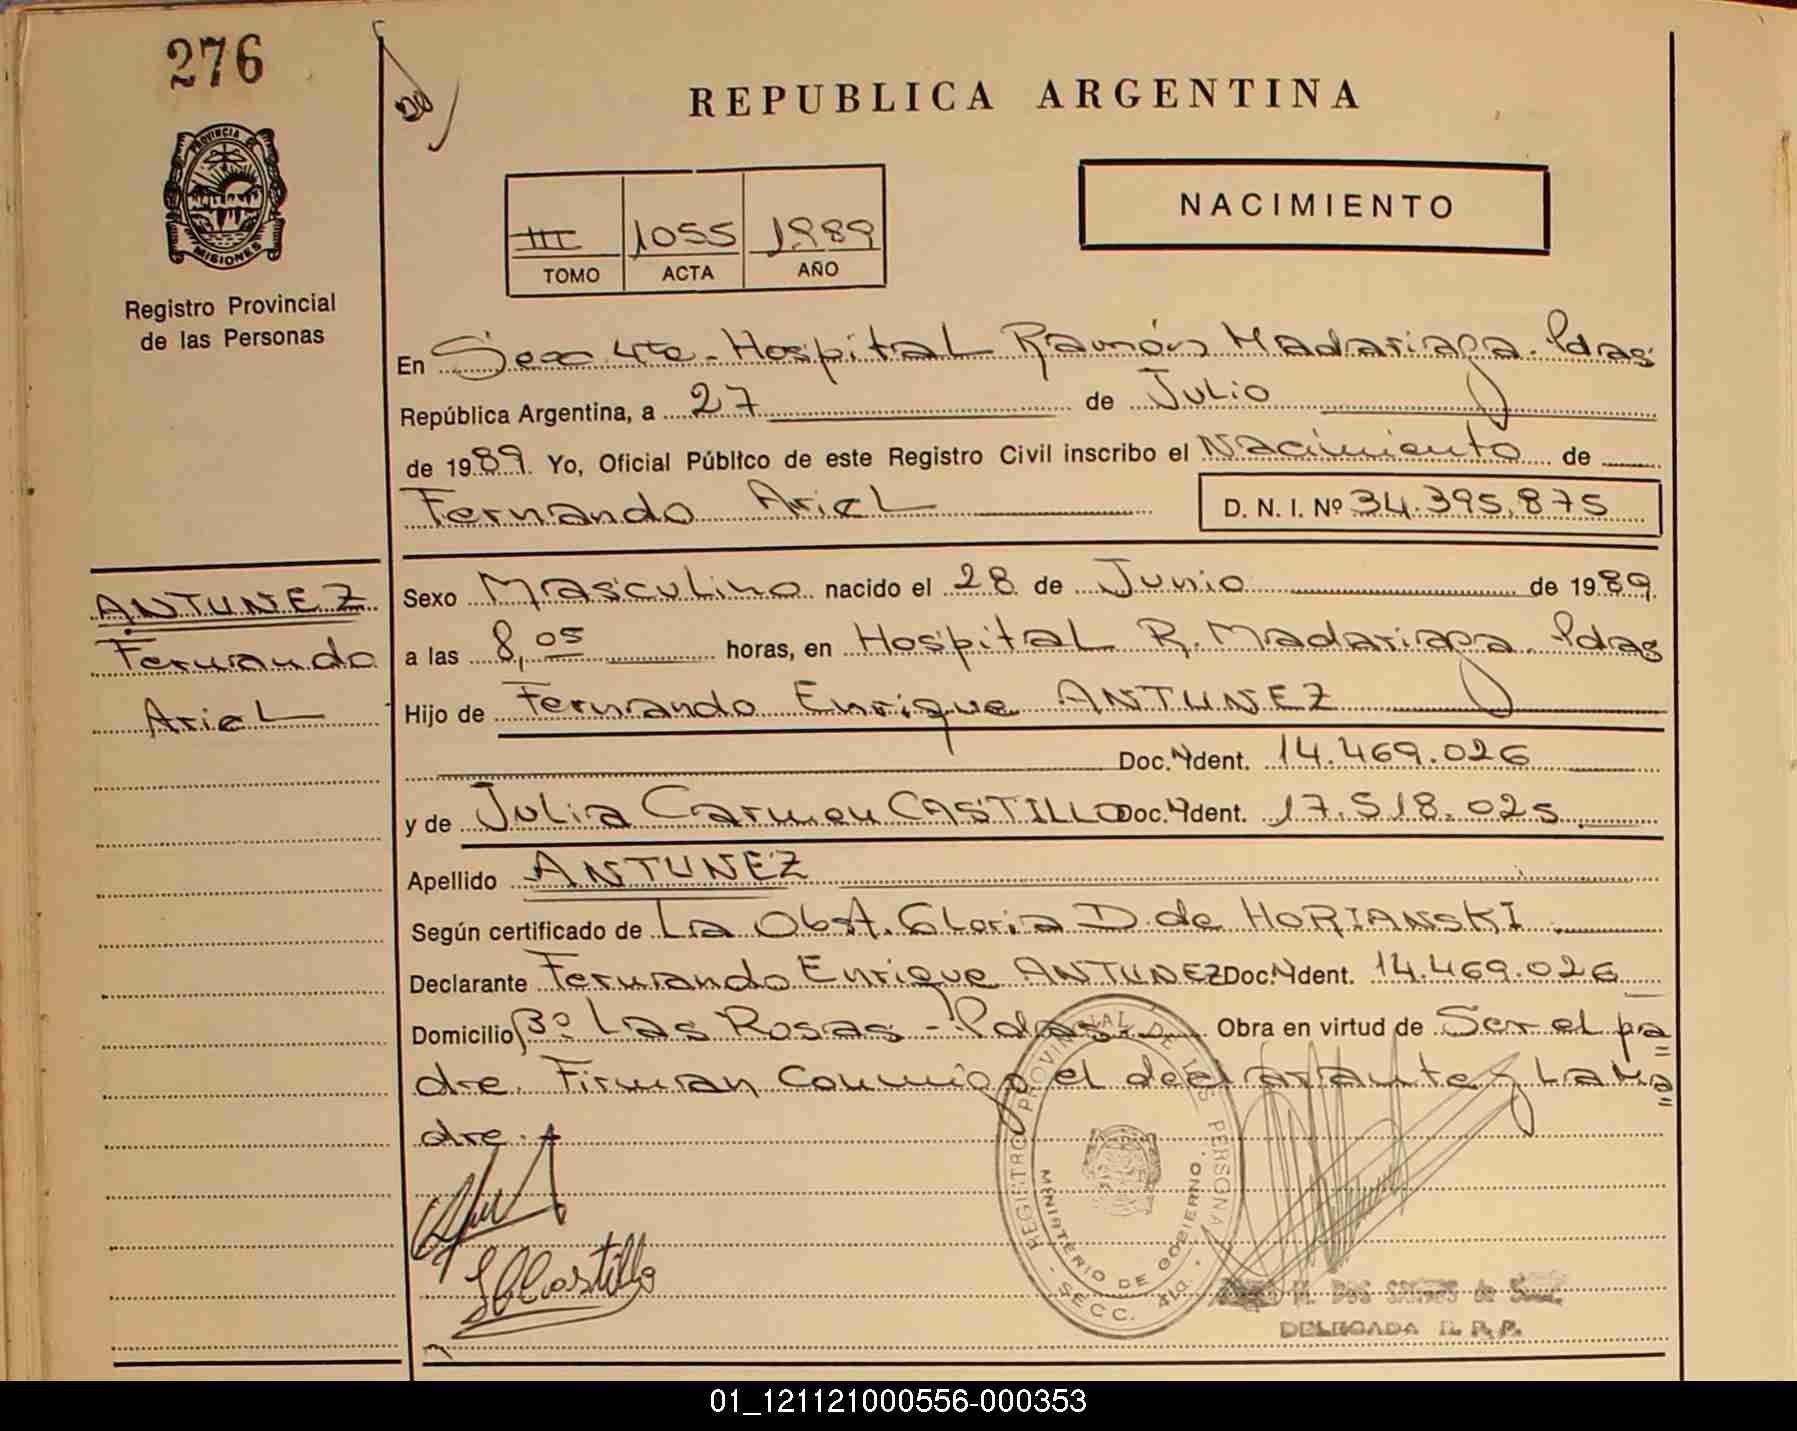 276
REPUBLICA ARGENTINA
PROVINCIA DE
MISIONES
Registro Provincial
de las Personas
III 1055 1989
TOMO ACTA AÑO
NACIMIENTO
En Secc 4ta - Hospital Ramón Madariaga. Pdas
República Argentina, a 27 de Julio
de 1989. Yo, Oficial Público de este Registro Civil inscribo el Nacimiento de
Fernando Ariel D. N. I. Nº 34.395.875
ANTUNEZ
Fernando
Ariel
Sexo Masculino nacido el 28 de Junio de 1989.
a las 8,05 horas, en Hospital R. Madariaga. Pdas
Hijo de Fernando Enrique ANTUNEZ
Doc. Ident. 14.469.026
y de Julia Carmen CASTILLO Doc. Ident. 17.518.025
Apellido ANTUNEZ
Según certificado de La Obst. Gloria D. de HORIANSKI
Declarante Fernando Enrique ANTUNEZ Doc. Ident. 14.469.026
Domicilio Bº Las Rosas - Pdas. Obra en virtud de Ser el pa=
dre. Firman conmigo el declarante y la ma=
dre.
JCCastillo
REGISTRO PROVINCIAL DE LAS PERSONAS
MINISTERIO DE GOBIERNO
- SECC. 4ta. -
M. DOS SANTOS de
DELEGADA R. P. P.
01_121121000556-000353